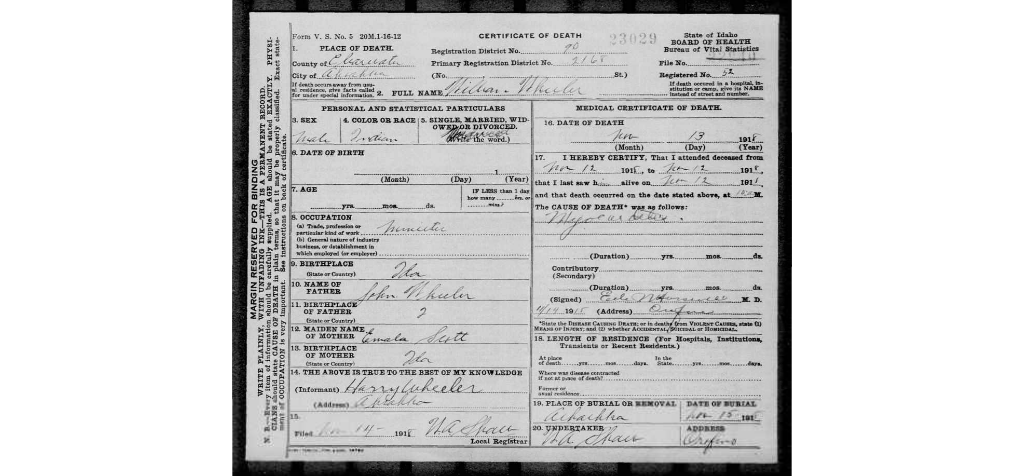 Form V. S. No. 5 20M.1-16-12
CERTIFICATE OF DEATH
23029
State of Idaho
BOARD OF HEALTH
Bureau of Vital Statistics
1. PLACE OF DEATH.
County of Clearwater
City of Ahsahka
If death occurs away from usual residence, give facts called for under special information.
Registration District No. 90
Primary Registration District No. 2168
(No. St.)
File No.
Registered No. 52
If death occured in a hospital, institution or camp, give its NAME instead of street and number.
2. FULL NAME William Wheeler
PERSONAL AND STATISTICAL PARTICULARS
3. SEX
Male
4. COLOR OR RACE
Indian
5. SINGLE, MARRIED, WIDOWED OR DIVORCED.
(Write the word.)
6. DATE OF BIRTH
1
(Month) (Day) (Year)
7. AGE
yrs. mos. ds.
IF LESS than 1 day
how many hrs. or
min.?
8. OCCUPATION
(a) Trade, profession or
particular kind of work Minister
(b) General nature of industry
business, or establishment in
which employed (or employer)
9. BIRTHPLACE
(State or Country) Ida
10. NAME OF
FATHER John Wheeler
11. BIRTHPLACE
OF FATHER ?
(State or Country)
12. MAIDEN NAME
OF MOTHER Scott
13. BIRTHPLACE
OF MOTHER Ida
(State or Country)
14. THE ABOVE IS TRUE TO THE BEST OF MY KNOWLEDGE
(Informant) Harry Wheeler
(Address) Ahsahka
15.
Filed Nov 14- 1918 W.A. Shaw
Local Registrar
MEDICAL CERTIFICATE OF DEATH.
16. DATE OF DEATH
Nov 13 1918
(Month) (Day) (Year)
17. I HEREBY CERTIFY, That I attended deceased from
Nov 12 1918, to Nov 12 1918,
that I last saw h alive on Nov 12 1918
and that death occurred on the date stated above, at M.
The CAUSE OF DEATH* was as follows:
(Duration) yrs. mos. ds.
Contributory
(Secondary)
(Duration) yrs. mos. ds.
(Signed) M. D.
1918 (Address) Orofino
*State the DISEASE CAUSING DEATH; or in deaths from VIOLENT CAUSES, state (1) MEANS OF INJURY; and (2) whether ACCIDENTAL, SUICIDAL or HOMICIDAL.
18. LENGTH OF RESIDENCE (For Hospitals, Institutions, Transients or Recent Residents.)
At place
of death yrs. mos. days.
In the
State yrs. mos. days.
Where was disease contracted
if not at place of death?
Former or
usual residence
19. PLACE OF BURIAL OR REMOVAL
Ahsahka
DATE OF BURIAL
Nov 15 1918
20. UNDERTAKER
W.A. Shaw
ADDRESS
Orofino
MARGIN RESERVED FOR BINDING
WRITE PLAINLY, WITH UNFADING INK—THIS IS A PERMANENT RECORD.
N. B.—Every item of information should be carefully supplied. AGE should be stated EXACTLY. PHYSICIANS should state CAUSE OF DEATH in plain terms, so that it may be properly classified. Exact statement of OCCUPATION is very important. See instructions on back of certificate.